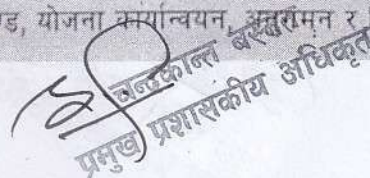 ड, योजना कार्यान्वयन, अनुगमन र
चन्द्रकान्त
प्रमुख प्रशासकीय अधिकृत